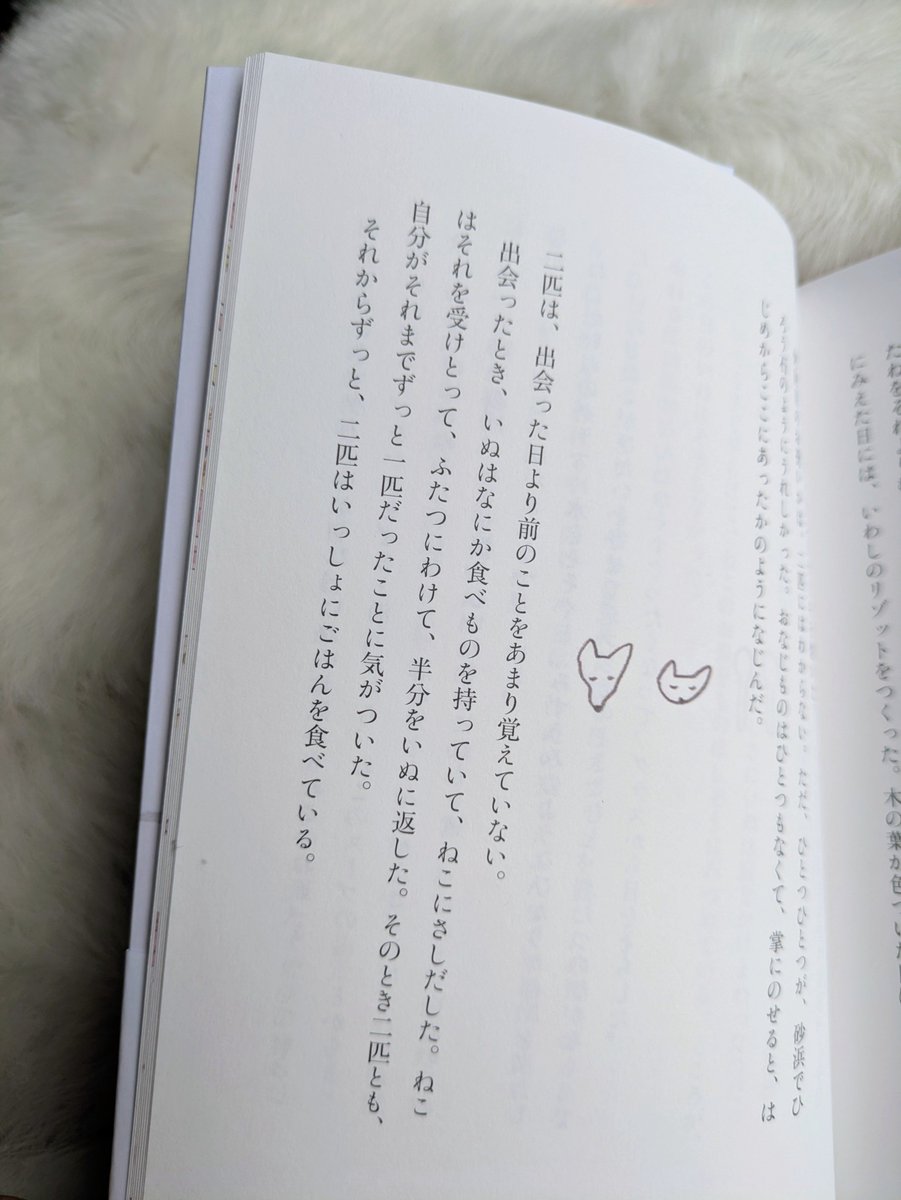 にみえた日には、いわしのリゾットをつくった。木の葉が色づいた
二匹にはわからない。ただ、ひとつひとつが、砂浜でひ
のようにうれしかった。おなじものはひとつもなくて、掌にのせると、は
じめからここにあったかのようになじんだ。
二匹は、出会った日より前のことをあまり覚えていない。
出会ったとき、いぬはなにか食べものを持っていて、ねこにさしだした。ねこ
はそれを受けとって、ふたつにわけて、半分をいぬに返した。そのとき二匹とも、
自分がそれまでずっと一匹だったことに気がついた。
それからずっと、二匹はいっしょにごはんを食べている。